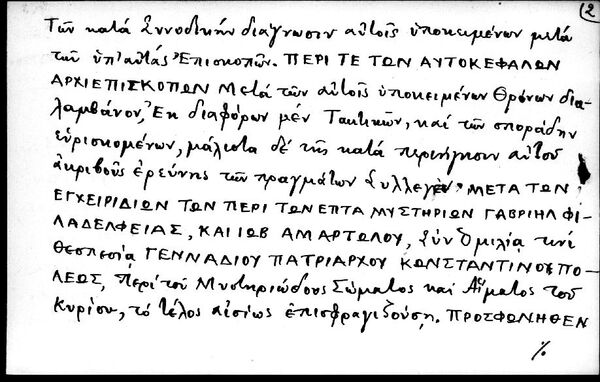 2
Τῶν κατὰ Συνοδικὴν διάγνωσιν αὐτοῖς ὑποκειμένων μετὰ
τῶν ὑπ' αὐτὰς Ἐπισκοπῶν. ΠΕΡΙ ΤΕ ΤΩΝ ΑΥΤΟΚΕΦΑΛΩΝ
ΑΡΧΙΕΠΙΣΚΟΠΩΝ Μετὰ τῶν αὐτοῖς ὑποκειμένων Θρόνων δια-
λαμβάνον, Ἐκ διαφόρων μὲν Τακτικῶν, καὶ τῶν σποράδην
εὑρισκομένων, μάλιστα δὲ τῆς κατὰ περιήγησιν αὐτοῦ
ἀκριβοῦς ἐρεύνης τῶν πραγμάτων Συλλεγὲν· ΜΕΤΑ ΤΩΝ
ΕΓΧΕΙΡΙΔΙΩΝ ΤΩΝ ΠΕΡΙ ΤΩΝ ΕΠΤΑ ΜΥΣΤΗΡΙΩΝ ΓΑΒΡΙΗΛ ΦΙ-
ΛΑΔΕΛΦΕΙΑΣ, ΚΑΙ ΙΩΒ ΑΜΑΡΤΩΛΟΥ, Σὺν Ὁμιλίᾳ τινὶ
Θεσπεσίᾳ ΓΕΝΝΑΔΙΟΥ ΠΑΤΡΙΑΡΧΟΥ ΚΩΝΣΤΑΝΤΙΝΟΥΠΟ-
ΛΕΩΣ, Περὶ τοῦ Μυστηριώδους Σώματος καὶ Αἵματος τοῦ
Κυρίου, τὸ τέλος αἰσίως ἐπισφραγιζούσῃ. ΠΡΟΣΦΩΝΗΘΕΝ
·/.